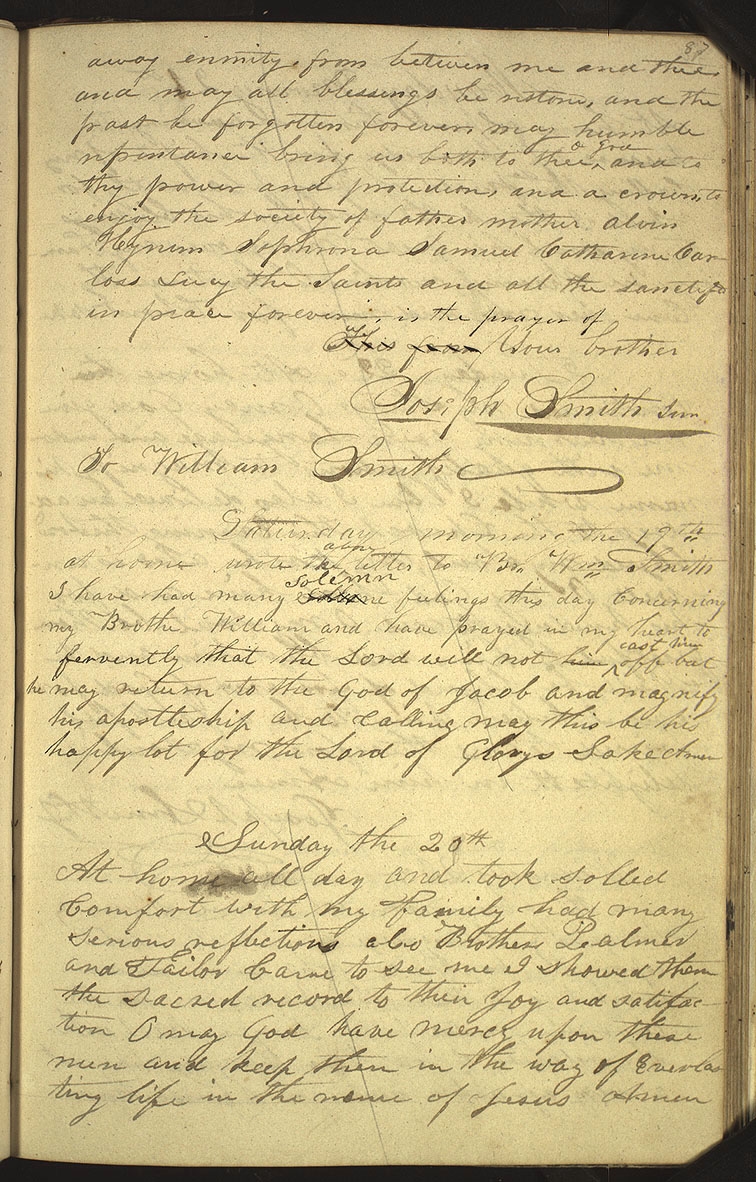 87
away enmity from between me and thee
and may all blessings be restored, and the
past be forgotten forever, may humble
repentance bring us both to thee, O God and to
thy power and protection, and a crown, to
enjoy the society of father mother Alvin
Hyrum Sophrona Samuel Catharine Car-
loss Lucy the Saints and all the sanctified
in peace forever, is the prayer of
This from Your brother
Joseph Smith Jun
To William Smith
Saturday morning the 19th
at home wrote the above letter to Br. Wm Smith
I have had many solemn feelings this day Concerning
my Brothe William and have prayed in my heart to
fervently that the Lord will not him cast him off but
he may return to the God of Jacob and magnify
his apostleship and calling may this be his
happy lot for the Lord of Glorys Sake Amen
Sunday the 20th
At home all day and took solled
Comfort with my Family had many
serious reflections also Brothers Palmer
and Tailor Came to see me I showed them
the sacred record to their Joy and satifac-
tion O may God have mercy upon these
men and keep them in the way of Everlas
ting life in the name of Jesus Amen